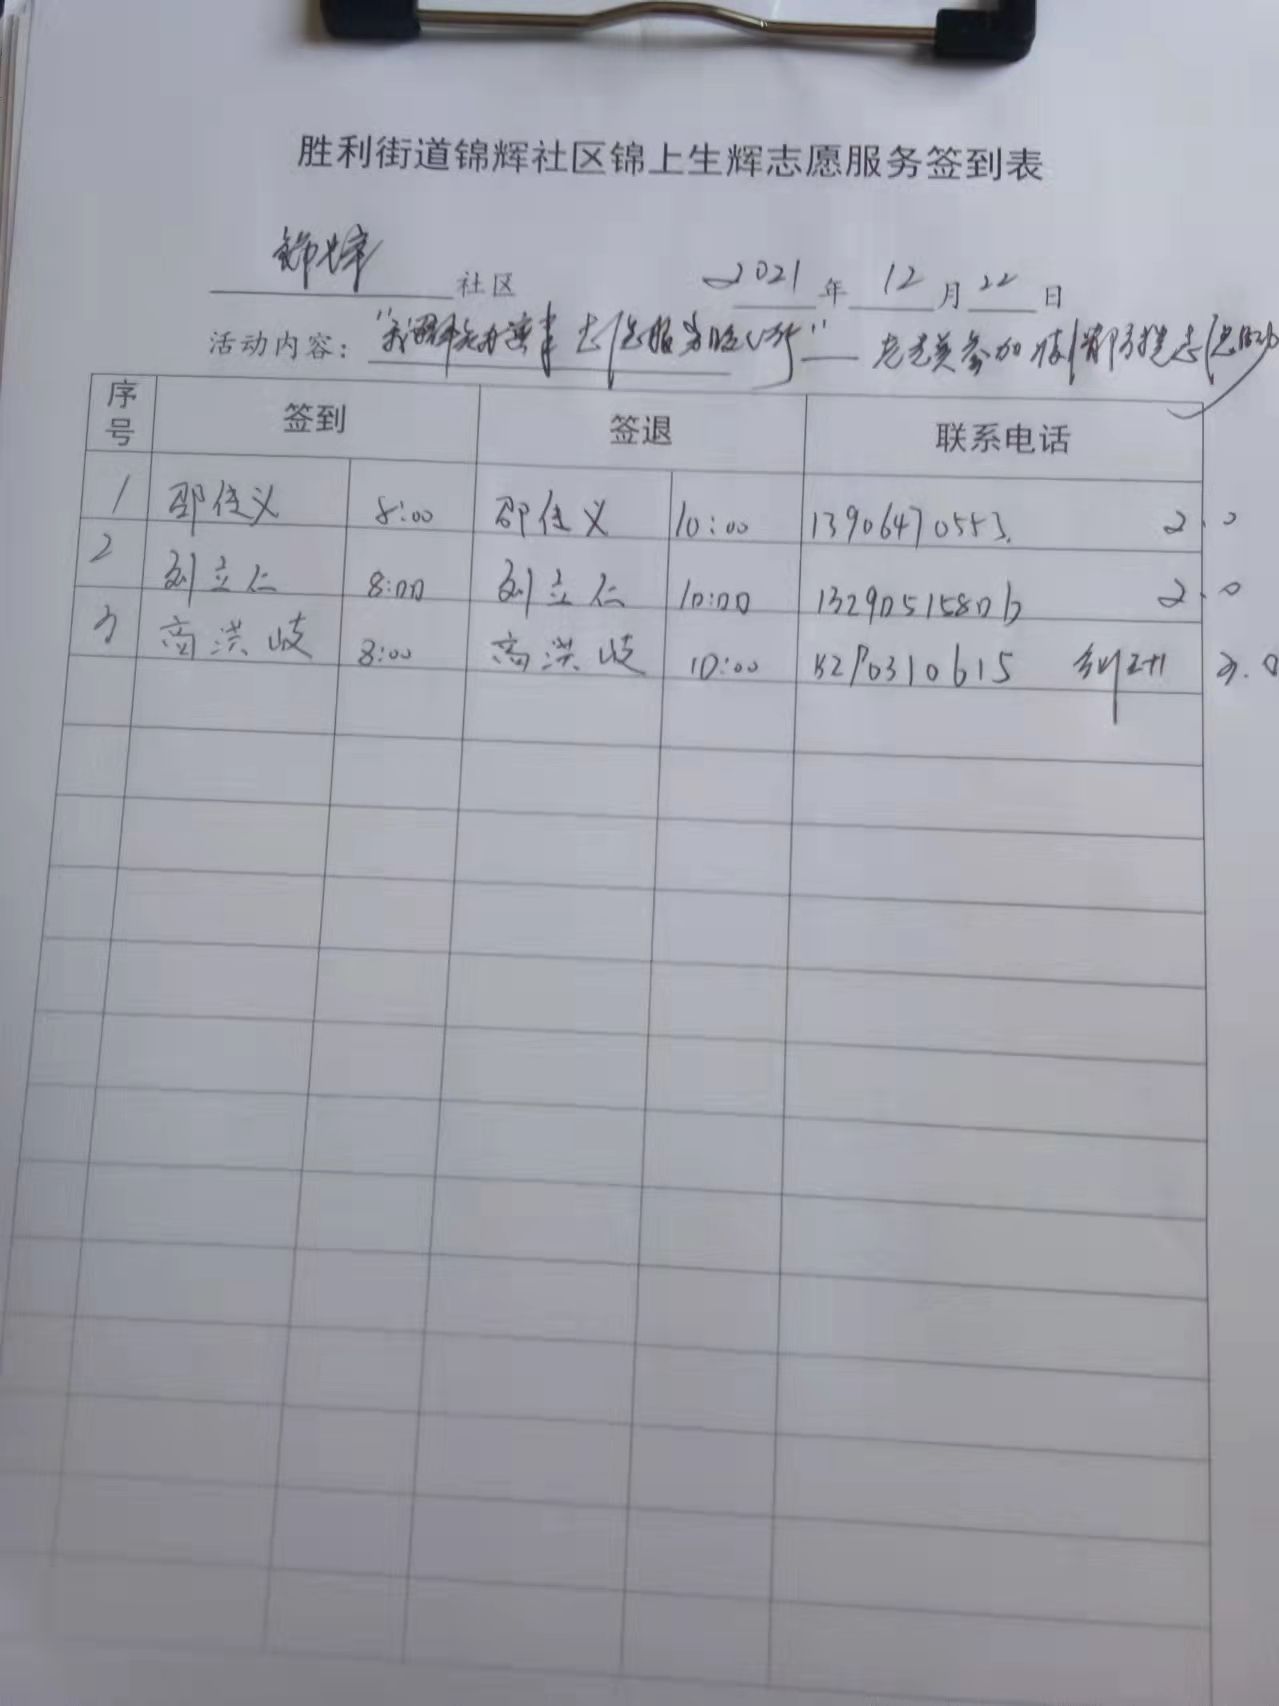 胜利街道锦辉社区锦上生辉志愿服务签到表
锦辉 社区 2021 年 12 月 22 日
活动内容: "我为群众办实事 志愿服务暖心行" 老党员参加疫情防控志愿活动
序号 签到 签退 联系电话
1 邵佳义 8:00 邵佳义 10:00 13906470553. 2.0
2 刘立仁 8:00 刘立仁 10:00 13290515806 2.0
3 高洪岐 8:00 高洪岐 10:00 0310615